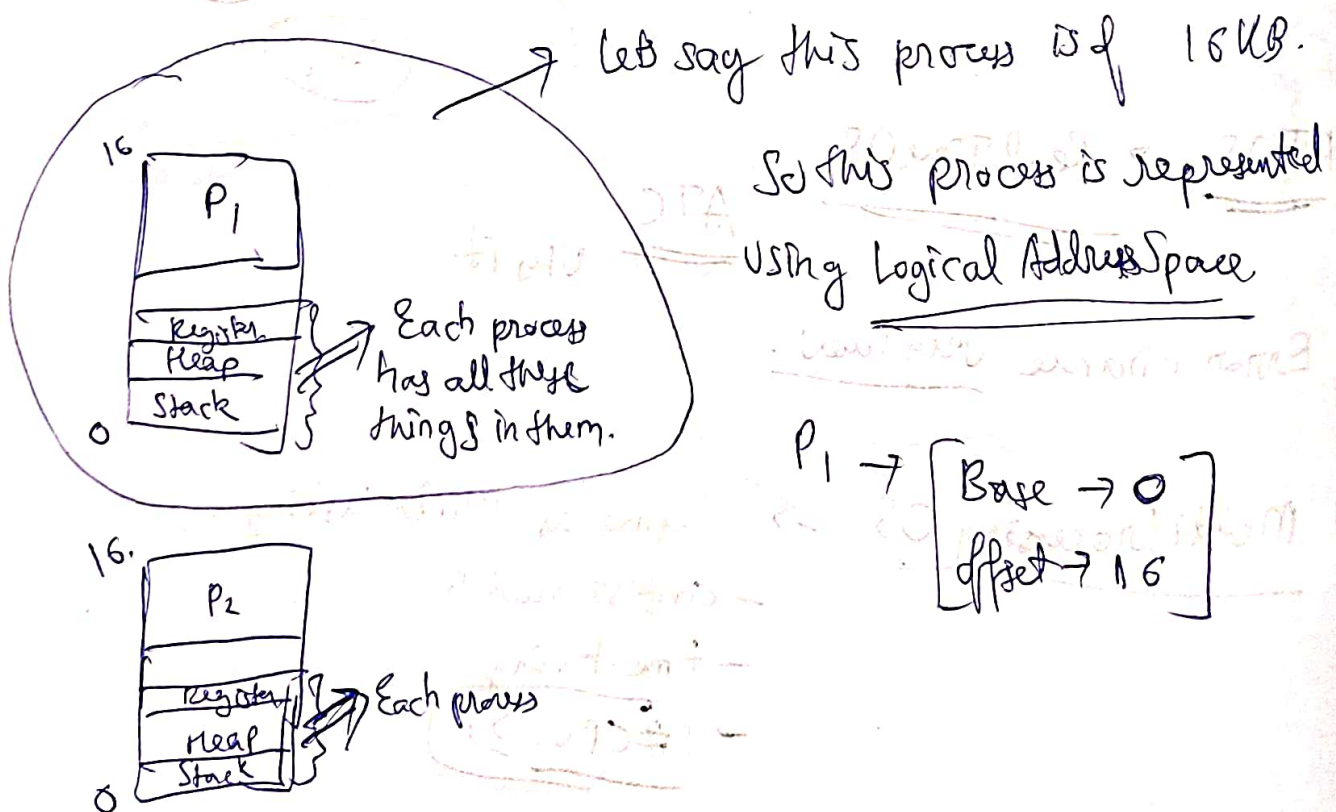 Lets say this process is of 16KB.
So this process is represented
Using Logical Address Space
16
P1
Register
Heap
Stack
0
Each process
has all these
things in them.
P1 → Base → 0
Offset → 16
16.
P2
Register
Heap
Stack
0
Each process